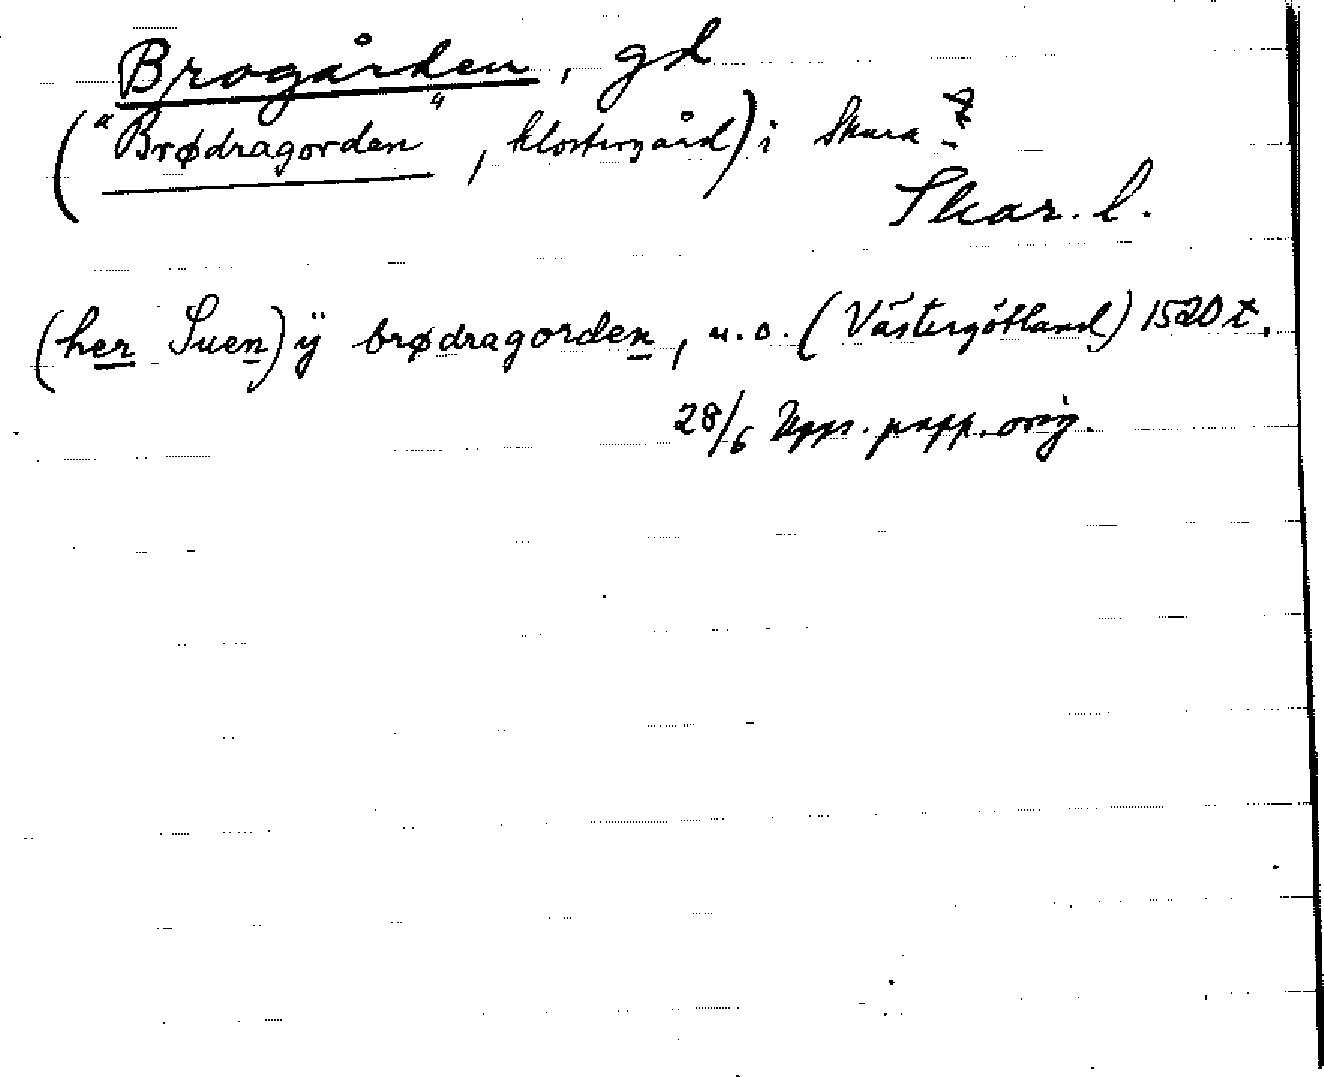 Brogården, gd
("Brødragorden", klostergård) i Skara ?
Skar. l.
(her Suen) ÿ brødragorden, u.o. (Västergötland) 1520 t.
28/6 Upps. papp. orig.